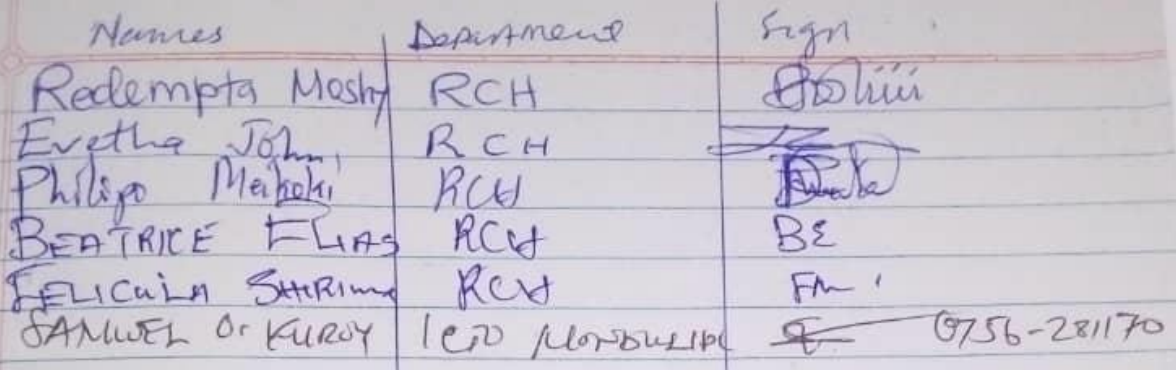 Names Department Sign
Redempta Moshy RCH
Evetha John, RCH
Philipo Meikoki RCH
BEATRICE ELIAS RCH BE
FELICULA SHIRIMA RCH FM
SAMWEL O. KUROY 0756-281170